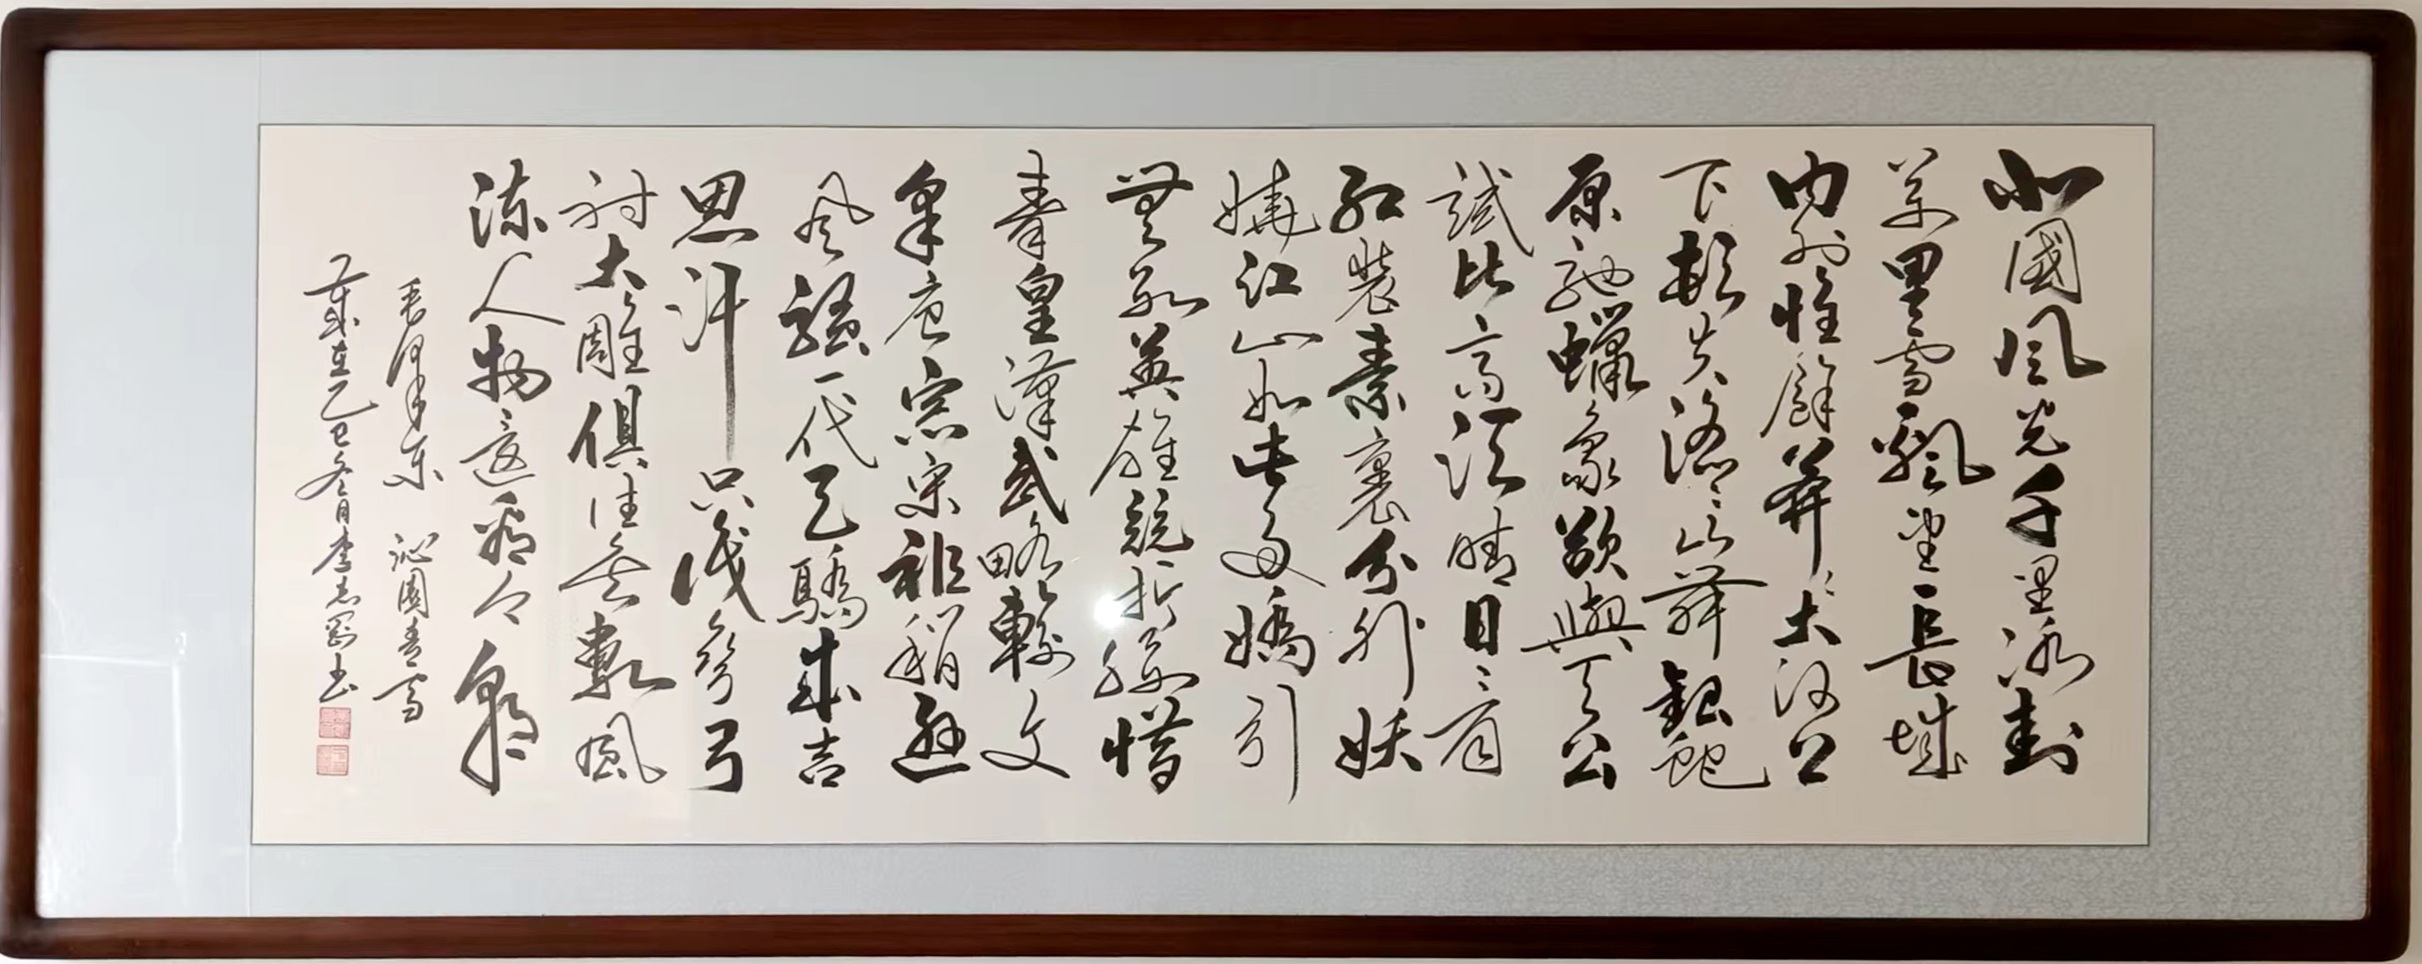 北國風光千里冰封
萬里雪飄望長城
内外惟餘莽〻大河上
下頓失滔〻山舞銀蛇
原馳蠟象欲與天公
試比高須晴日看
紅裝素裹分外妖
嬈江山如此多嬌引
無數英雄競折腰惜
秦皇漢武略輸文
采唐宗宋祖稍遜
風騷一代天驕成吉
思汗只識彎弓
射大雕俱往矣數風
流人物還看今朝
毛澤東 沁園春雪
歲在乙巳冬月李志剛書